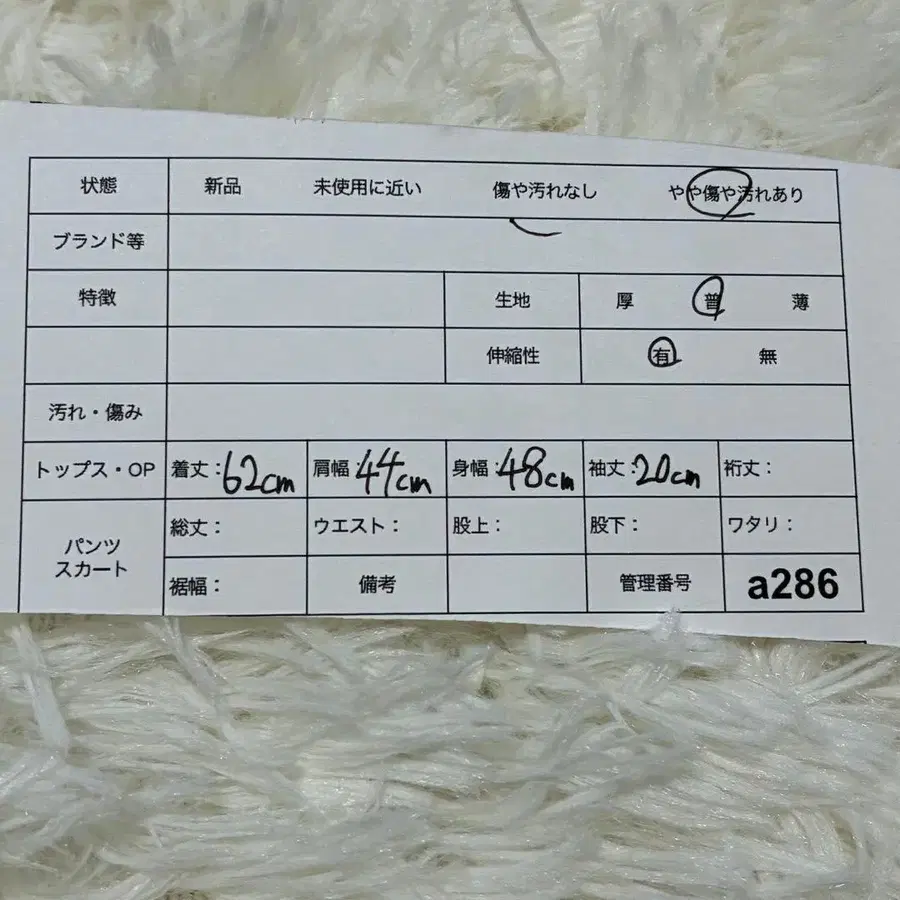 状態 新品 未使用に近い 傷や汚れなし やや傷や汚れあり
ブランド等
特徴 生地 厚 普 薄
伸縮性 有 無
汚れ・傷み
トップス・OP 着丈：62cm 肩幅 44cm 身幅：48cm 袖丈：20cm 裄丈：
パンツ
スカート
総丈： ウエスト： 股上： 股下： ワタリ：
裾幅： 備考 管理番号 a286